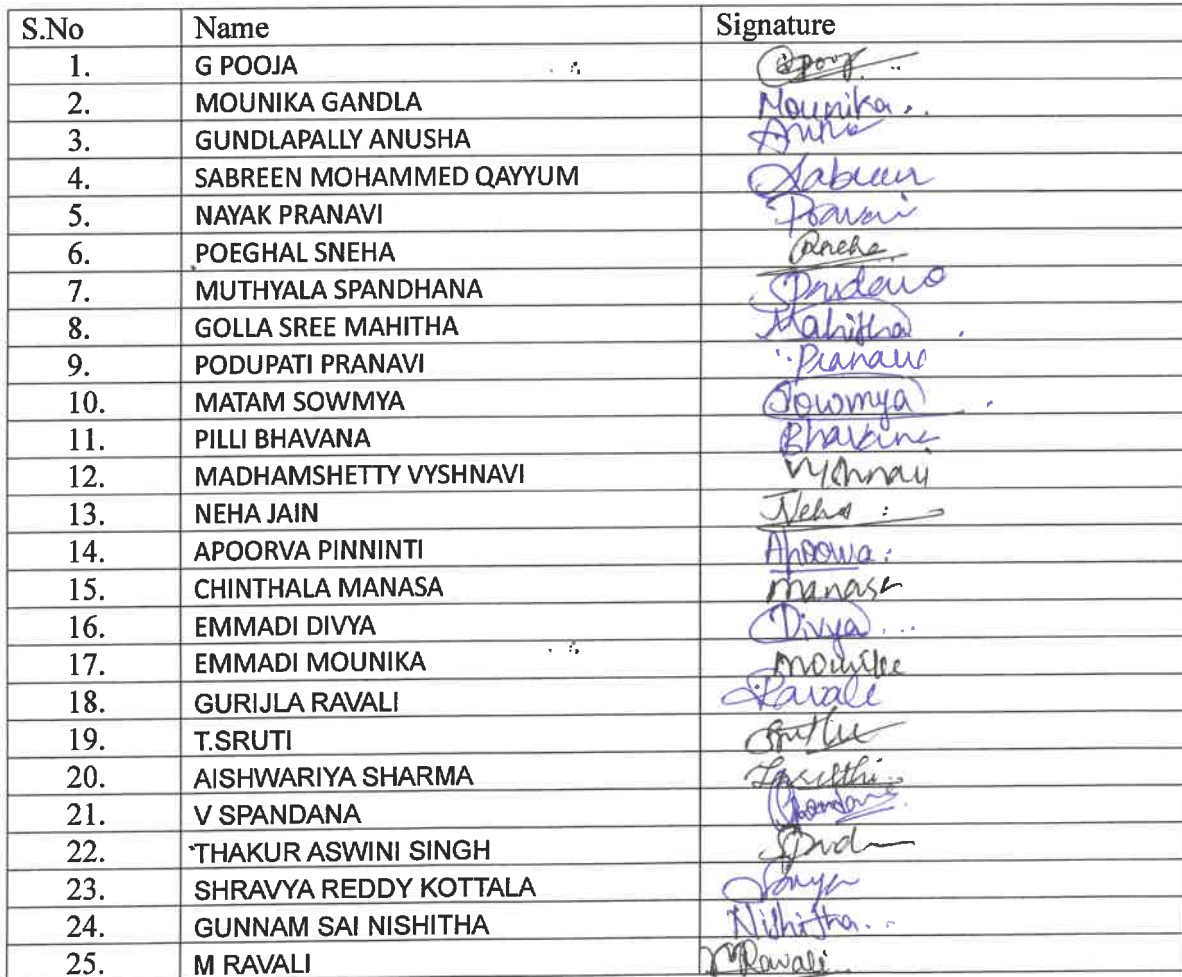 S.No Name Signature
1. G POOJA
2. MOUNIKA GANDLA Mounika..
3. GUNDLAPALLY ANUSHA
4. SABREEN MOHAMMED QAYYUM Sabreen
5. NAYAK PRANAVI
6. POEGHAL SNEHA Sneha
7. MUTHYALA SPANDHANA
8. GOLLA SREE MAHITHA Mahitha
9. PODUPATI PRANAVI Pranavi
10. MATAM SOWMYA Sowmya
11. PILLI BHAVANA Bhavana
12. MADHAMSHETTY VYSHNAVI Vyshnavi
13. NEHA JAIN Neha
14. APOORVA PINNINTI Apoorva
15. CHINTHALA MANASA Manasa
16. EMMADI DIVYA Divya...
17. EMMADI MOUNIKA Mounika
18. GURIJLA RAVALI Ravali
19. T.SRUTI
20. AISHWARIYA SHARMA
21. V SPANDANA Spandana
22. THAKUR ASWINI SINGH
23. SHRAVYA REDDY KOTTALA
24. GUNNAM SAI NISHITHA Nishitha..
25. M RAVALI MRavali